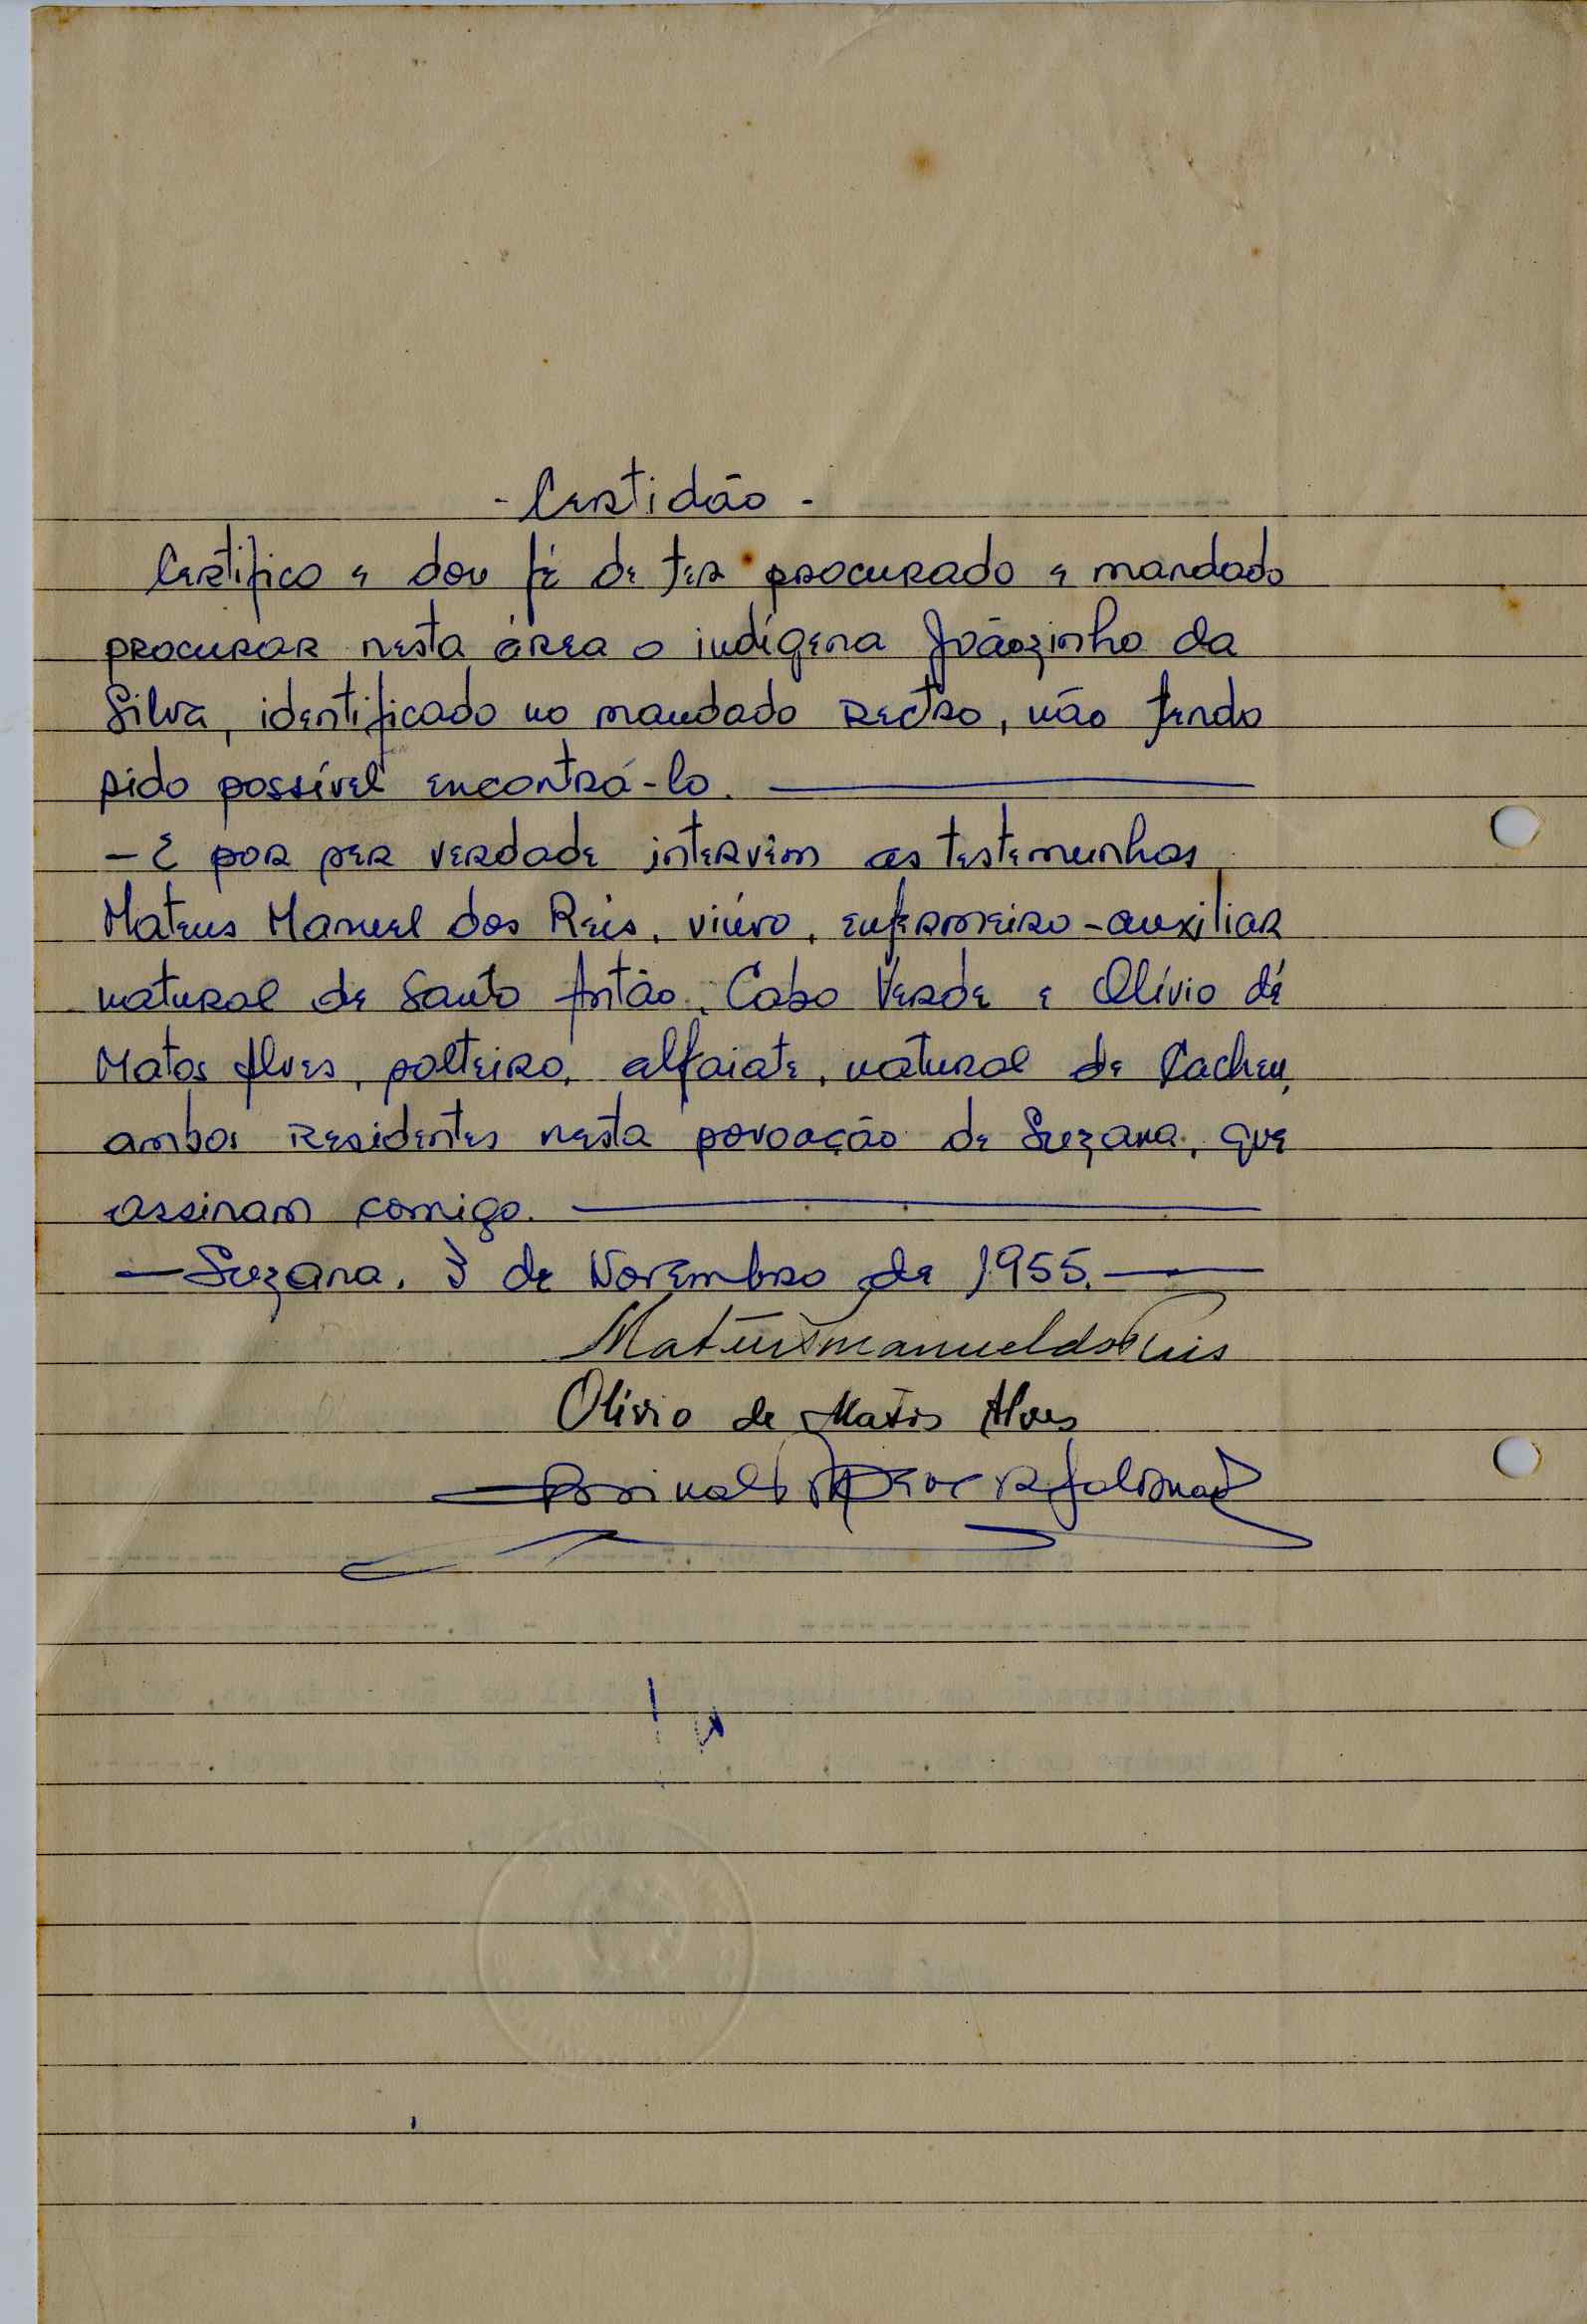 - Certidão -
Certifico e dou fé de ter procurado e mandado
procurar nesta área o indígena Joãozinho da
Silva, identificado no mandado rectro, não tendo
sido possível encontrá-lo.
- E por ser verdade intervêm as testemunhas
Mateus Manuel dos Reis, viúvo, enfermeiro-auxiliar
natural de Santo Antão, Cabo Verde e Olívio de
Matos Alves, solteiro, alfaiate, natural de Cacheu,
ambos residentes nesta povoação de Suzana, que
assinam comigo.
— Suzana, 3 de Novembro de 1955. —
Mateus manuel dos Reis
Olívio de Matos Alves